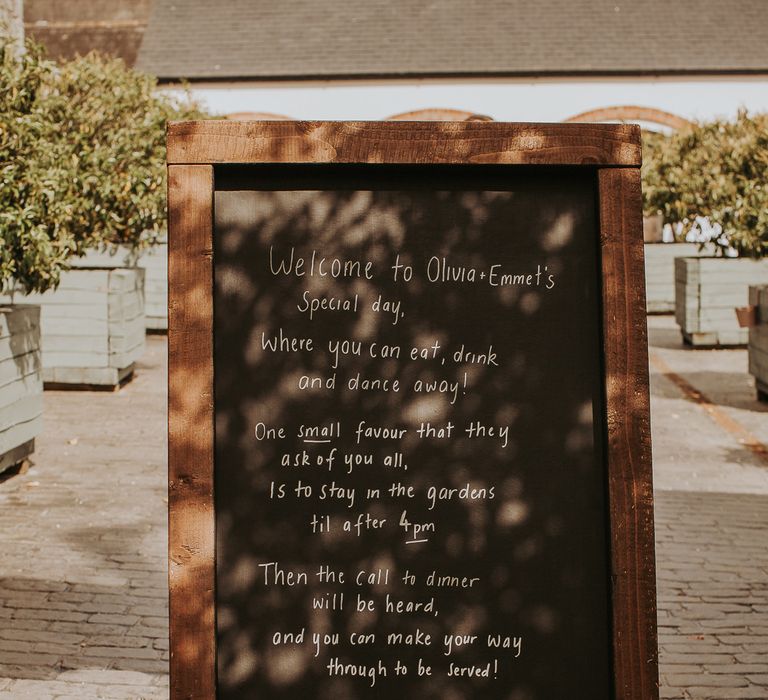 Welcome to Olivia + Emmet's
Special day,
Where you can eat, drink
and dance away!
One small favour that they
ask of you all,
Is to stay in the gardens
til after 4pm
Then the call to dinner
will be heard,
and you can make your way
through to be served!